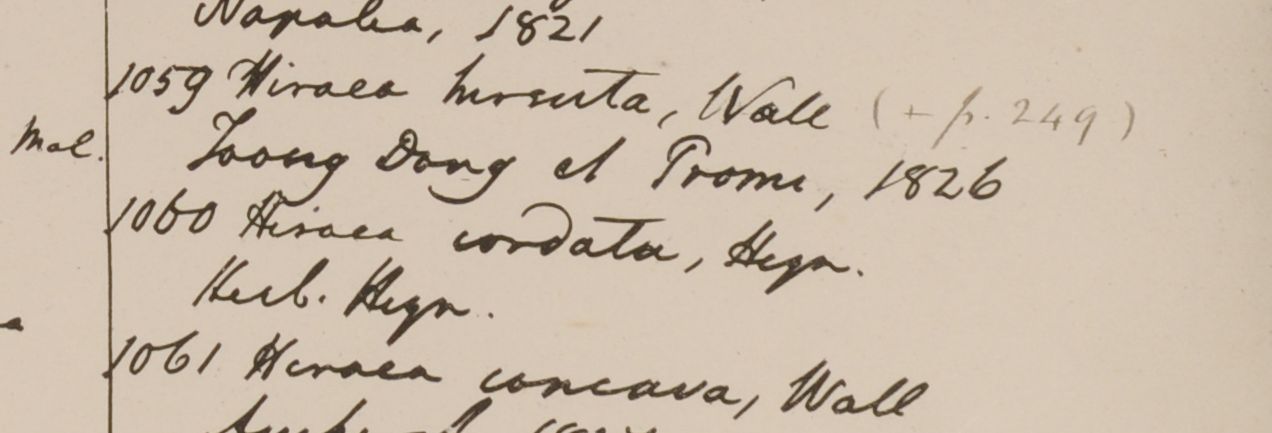 Napalia, 1821
1059 Hiraea hirsuta, Wall (+ p. 249)
Mal.
Toong Dong et Prome, 1826
1060 Hiraea cordata, Heyn.
Herb. Heyn.
a
1061 Hiraea concava, Wall